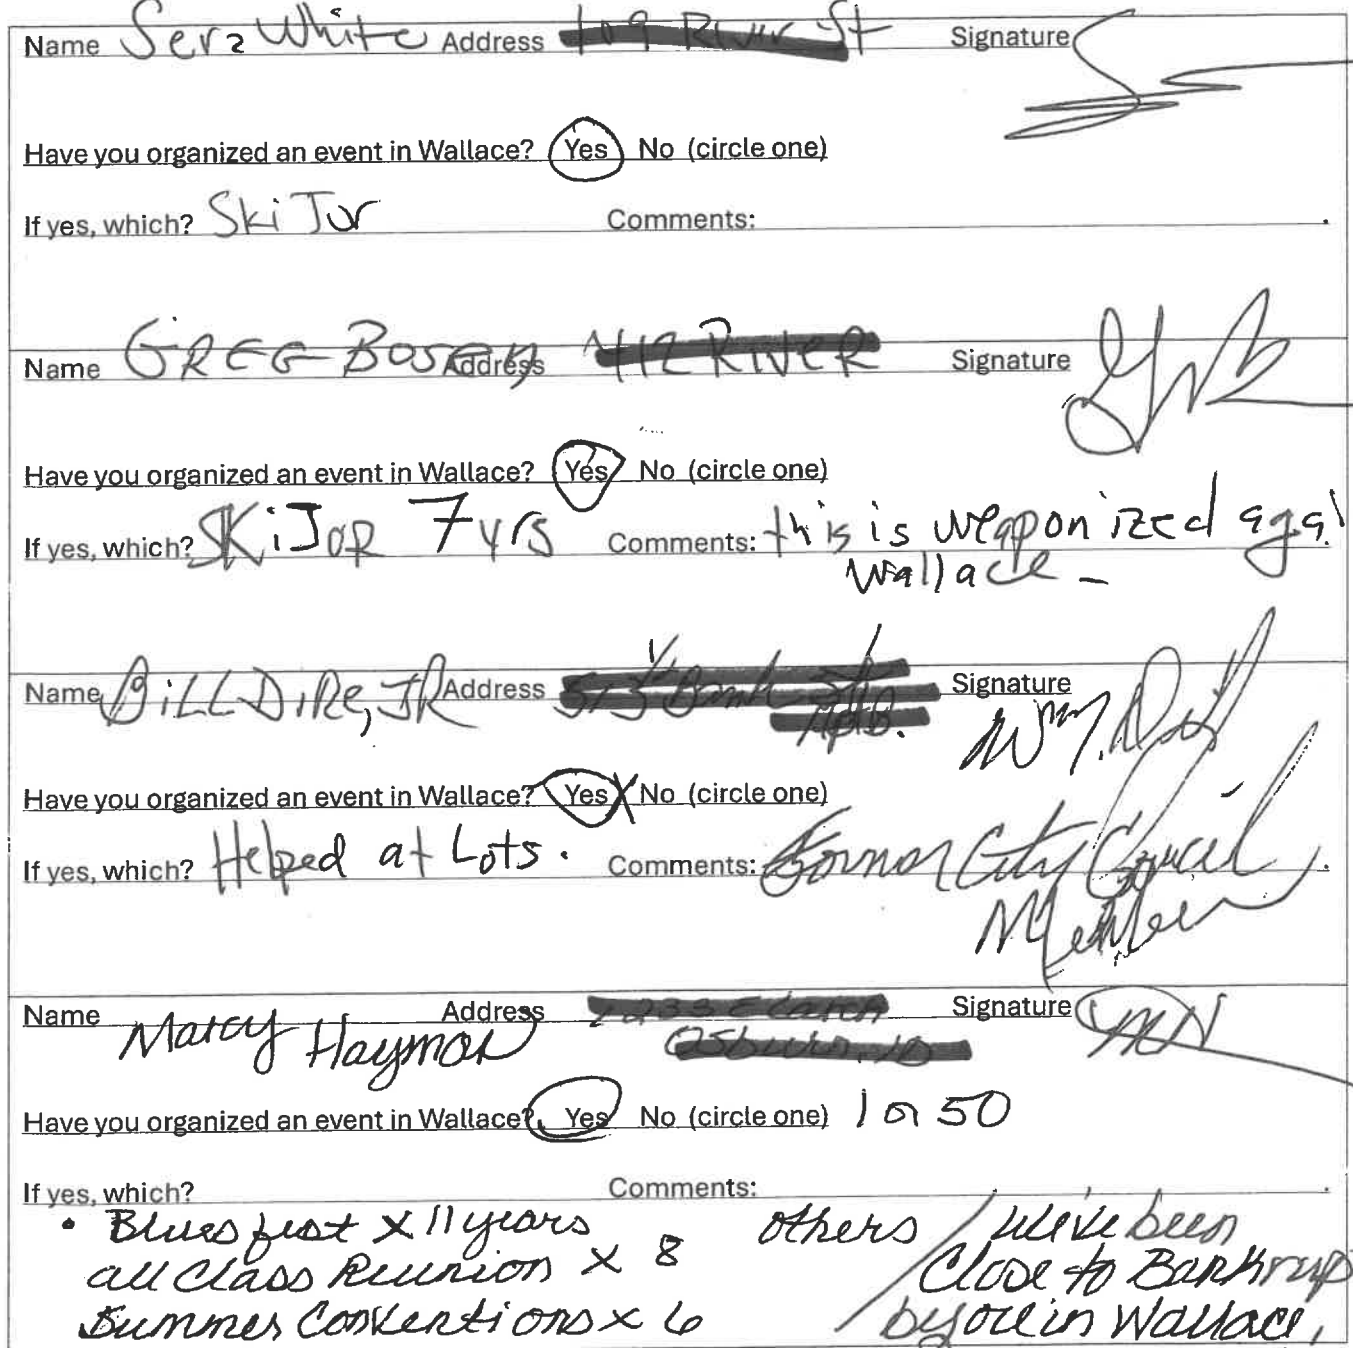 Name Sera White Address Signature
Have you organized an event in Wallace? Yes No (circle one)
If yes, which? Ski Jor Comments:
Name GREG BOSEN Address Signature
Have you organized an event in Wallace? Yes No (circle one)
If yes, which? SKiJOR 7 yrs Comments: this is weaponized aga
Wallace -
Name BiLL DiRe, JR Address Signature
Have you organized an event in Wallace? Yes No (circle one)
If yes, which? Helped at Lots. Comments: Former City Council
Member
Name Marcy Hayman Address Signature
Have you organized an event in Wallace? Yes No (circle one) 1 or 50
If yes, which? Comments:
• Blues fest x 11 years others / We've been
all Class Reunion x 8 Close to Bankrup
Summer Conventions x 6 before in Wallace,